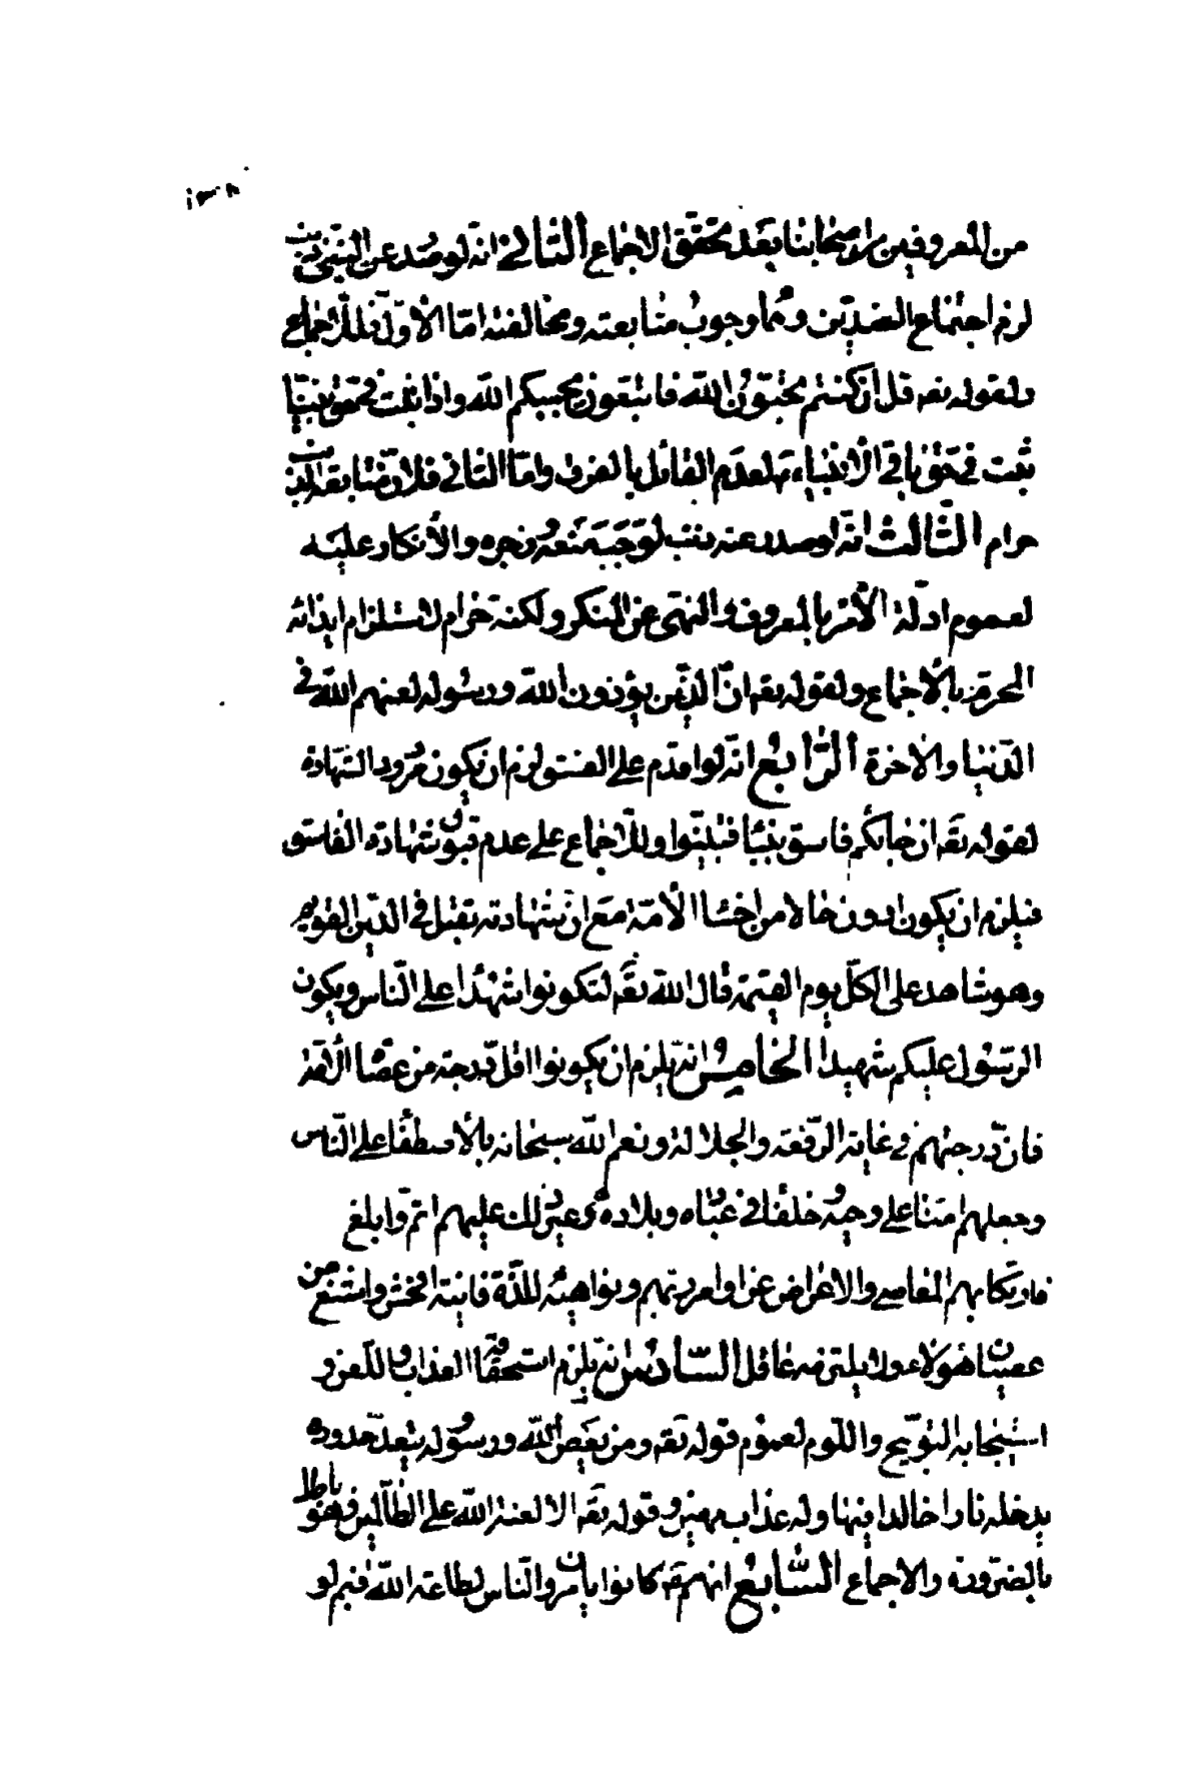 من المعروفين من اصحابنا بعد تحقق الاجماع الثاني انه لو صدر عن النبي ذنب
لزم اجتماع الضدين وهما وجوب متابعته ومخالفته اما الأول فللاجماع
ولقوله تعه قل ان كنتم تحبون الله فاتبعوني يحببكم الله واذا ثبت في حق نبينا
ثبت في حق باقي الأنبياء لعدم القائل بالفرق واما الثاني فلان متابعة المذنب
حرام الثالث انه لو صدر عنه ذنب لوجب منعه وزجره والأنكار عليه
لعموم ادلة الأمر بالمعروف والنهى عن المنكر ولكنه حرام لاستلزام ايذائه
المحرم بالأجماع ولقوله تعه ان الذين يؤذون الله ورسوله لعنهم الله في
الدنيا والاخرة الرابع انه لو اقدم على الفسق لزم ان يكون مردود الشهادة
لقوله تعه ان جائكم فاسق بنبأ فتبينوا وللاجماع على عدم قبول شهادة الفاسق
فيلزم ان يكون ادون حالا من احاد الأمة مع ان شهادته تقبل في الدين القويم
وهو شاهد على الكل يوم القيمة قال الله تعه لتكونوا شهداء على الناس ويكون
الرسول عليكم شهيدا الخامس انه يلزم ان يكونوا اقل درجة من عصاة الأمة
فان درجتهم في غاية الرفعة والجلالة ونعم الله سبحانه بالأصطفا على الناس
وجعلهم امنا على وحيه وخلفا في عباده وبلاده وغير ذلك عليهم اتم وابلغ
فارتكابهم المعاصي والاعراض عن اوامر ربهم ونواهيه للذة فانية افحش واشنع من
عصيان هؤلاء ولا يلتزمه عاقل السادس انه يلزم استحقاقه العذاب واللعن و
استيجابه التوبيخ واللوم لعموم قوله تعه ومن يعص الله ورسوله ويتعد حدوده
يدخله نارا خالدا فيها وله عذاب مهين وقوله تعه الا لعنة الله على الظالمين وهو باطل
بالضرورة والاجماع السابع انهم كانوا يأمرون الناس لطاعة الله فهم لو